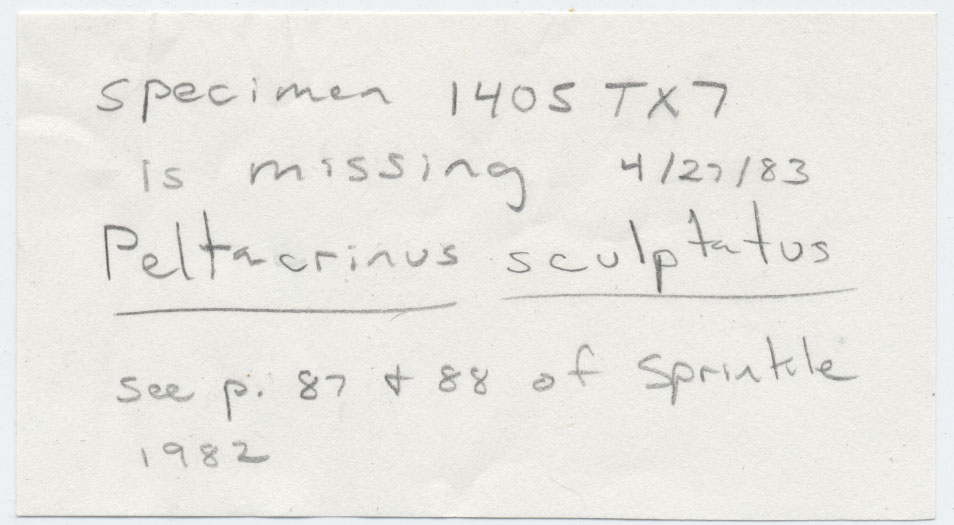 specimen 1405 TX7
is missing 4/27/83
Peltacrinus sculptatus
see p. 87 + 88 of Sprinkle
1982